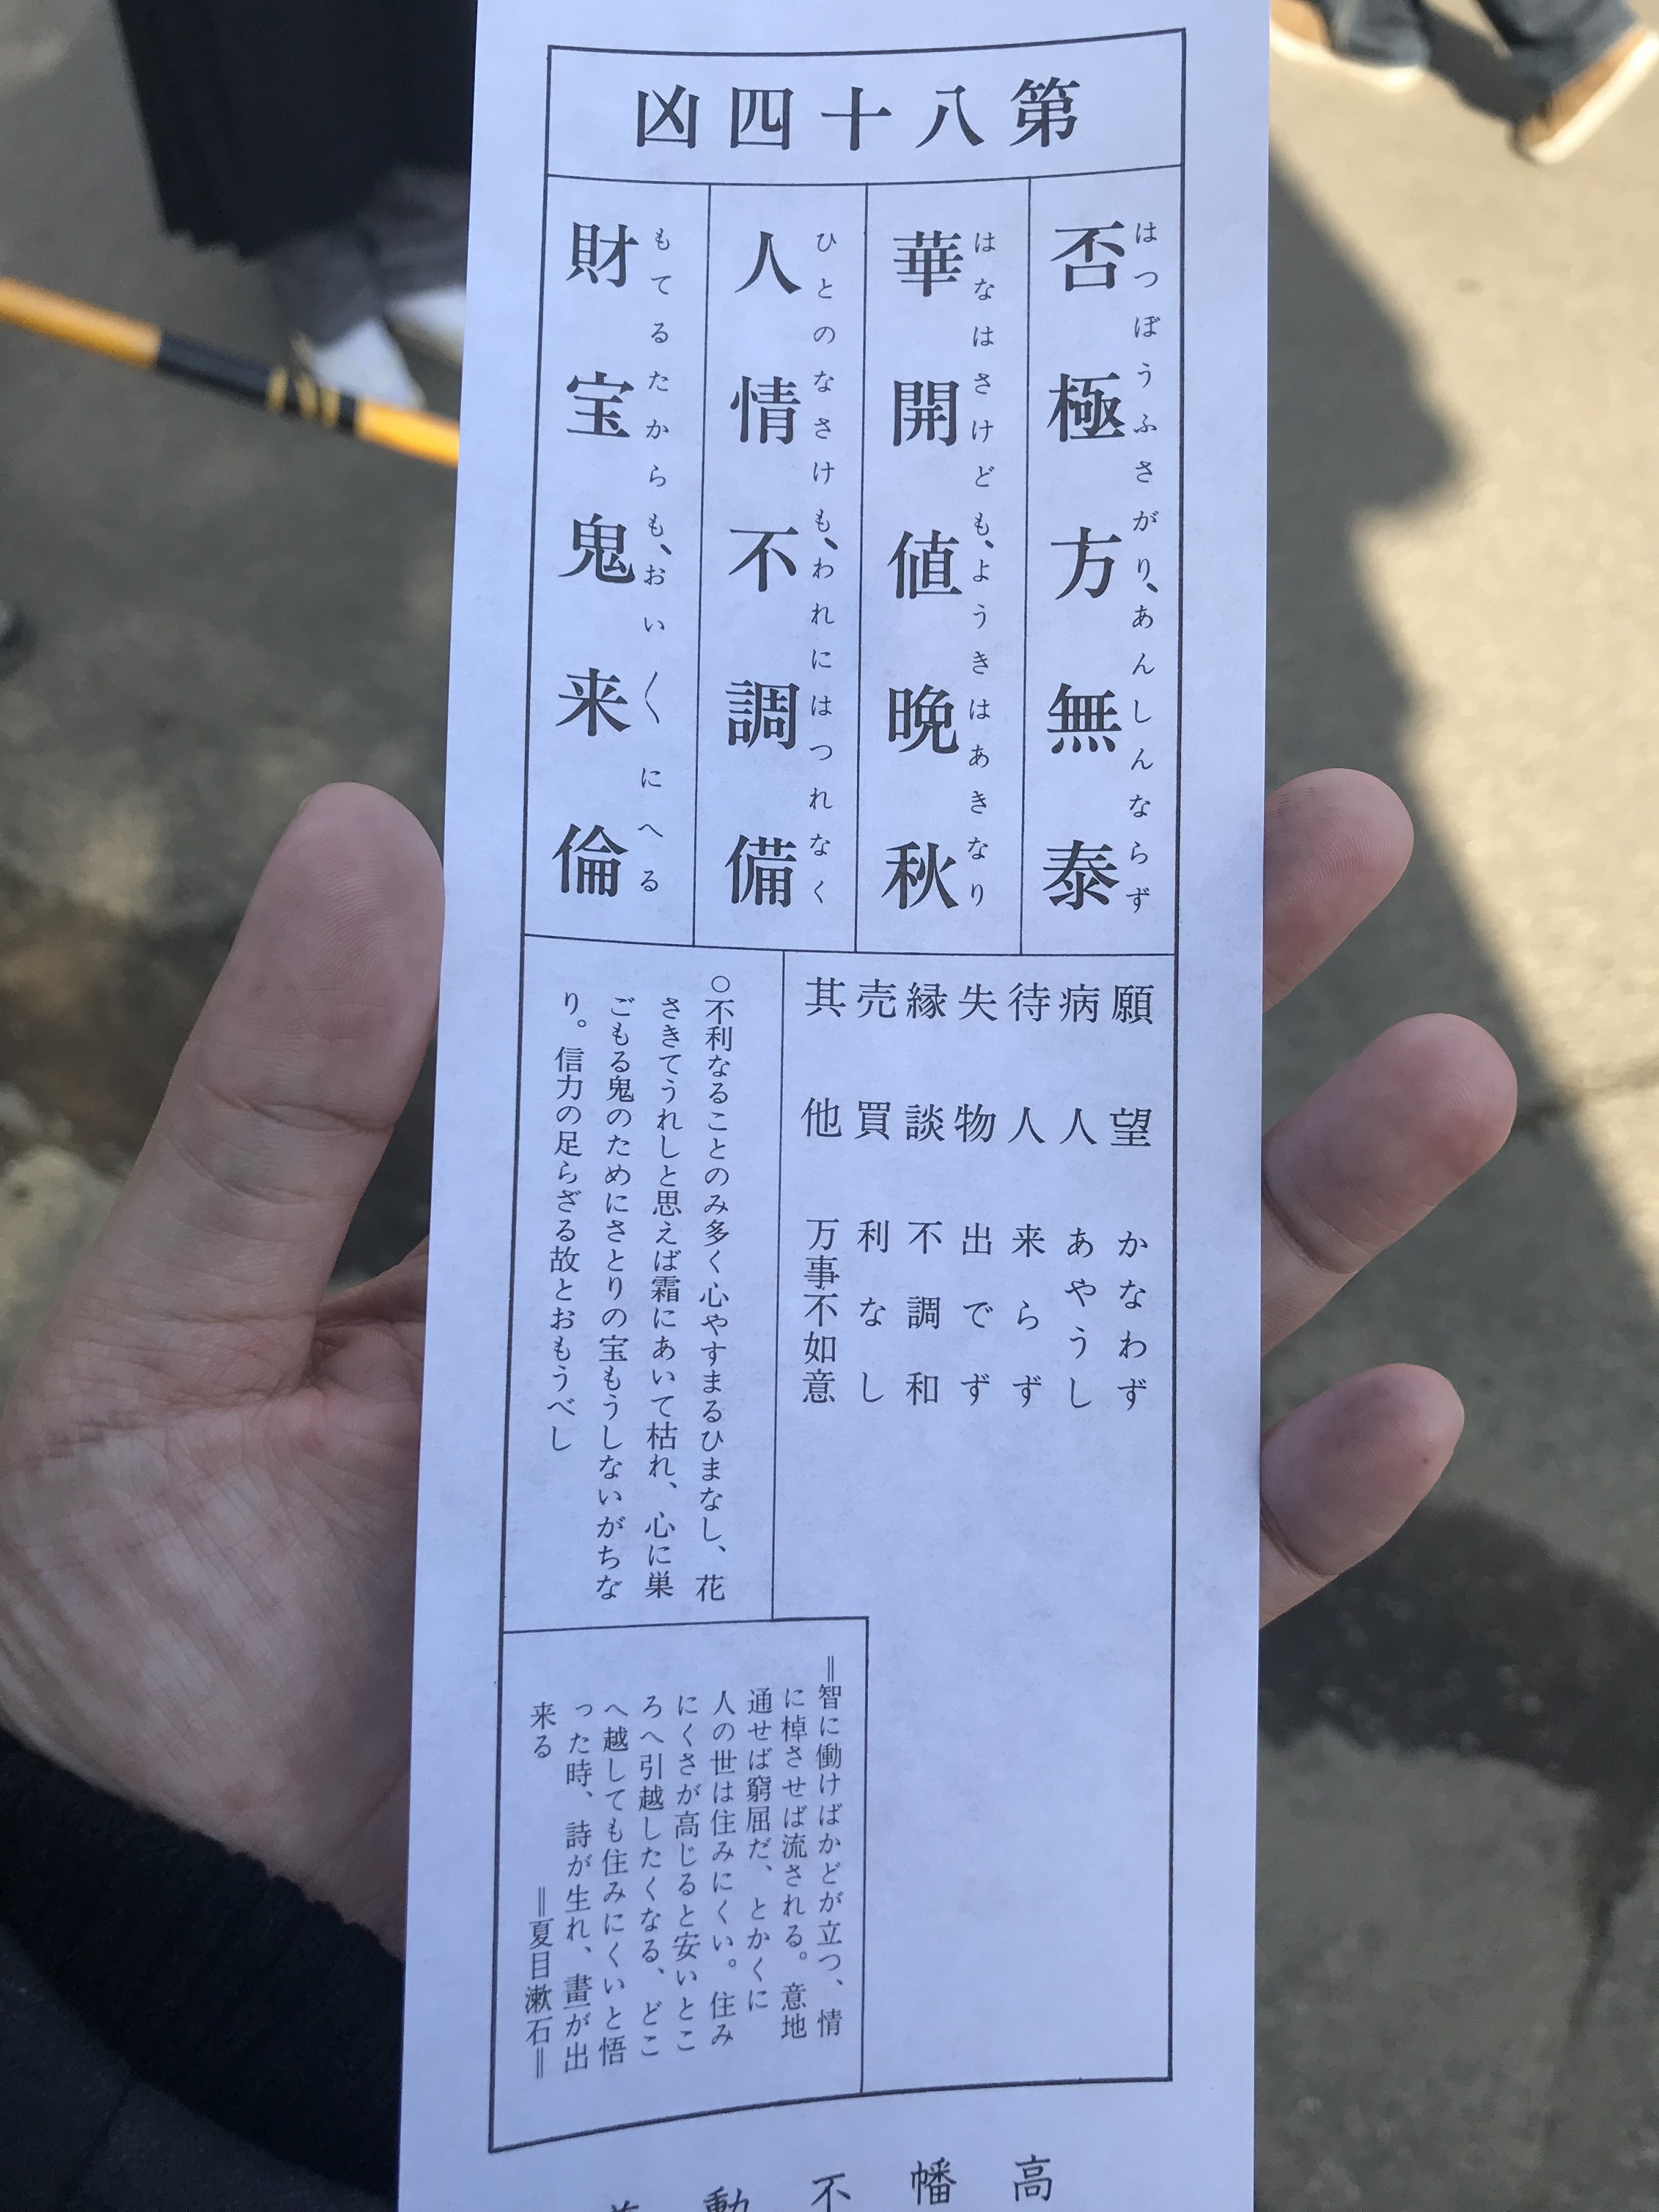 第八十四凶
否極方無泰
はつぼうふさがり、あんしんならず
華開値晩秋
はなはさけども、ようきはあきなり
人情不調備
ひとのなさけも、われにはつれなく
財宝鬼来倫
もてるたからも、おい〱にへる
願望 かなわず
病人 あやうし
待人 来らず
失物 出でず
縁談 不調和
売買 利なし
其他 万事不如意
○不利なることのみ多く心やすまるひまなし、花
さきてうれしと思えば霜にあいて枯れ、心に巣
ごもる鬼のためにさとりの宝もうしないがちな
り。信力の足らざる故とおもうべし
＝智に働けばかどが立つ、情
に棹させば流される。意地
通せば窮屈だ、とかくに
人の世は住みにくい。住み
にくさが高じると安いとこ
ろへ引越したくなる、どこ
へ越しても住みにくいと悟
った時、詩が生れ、畫が出
来る ＝夏目漱石＝
高幡不動